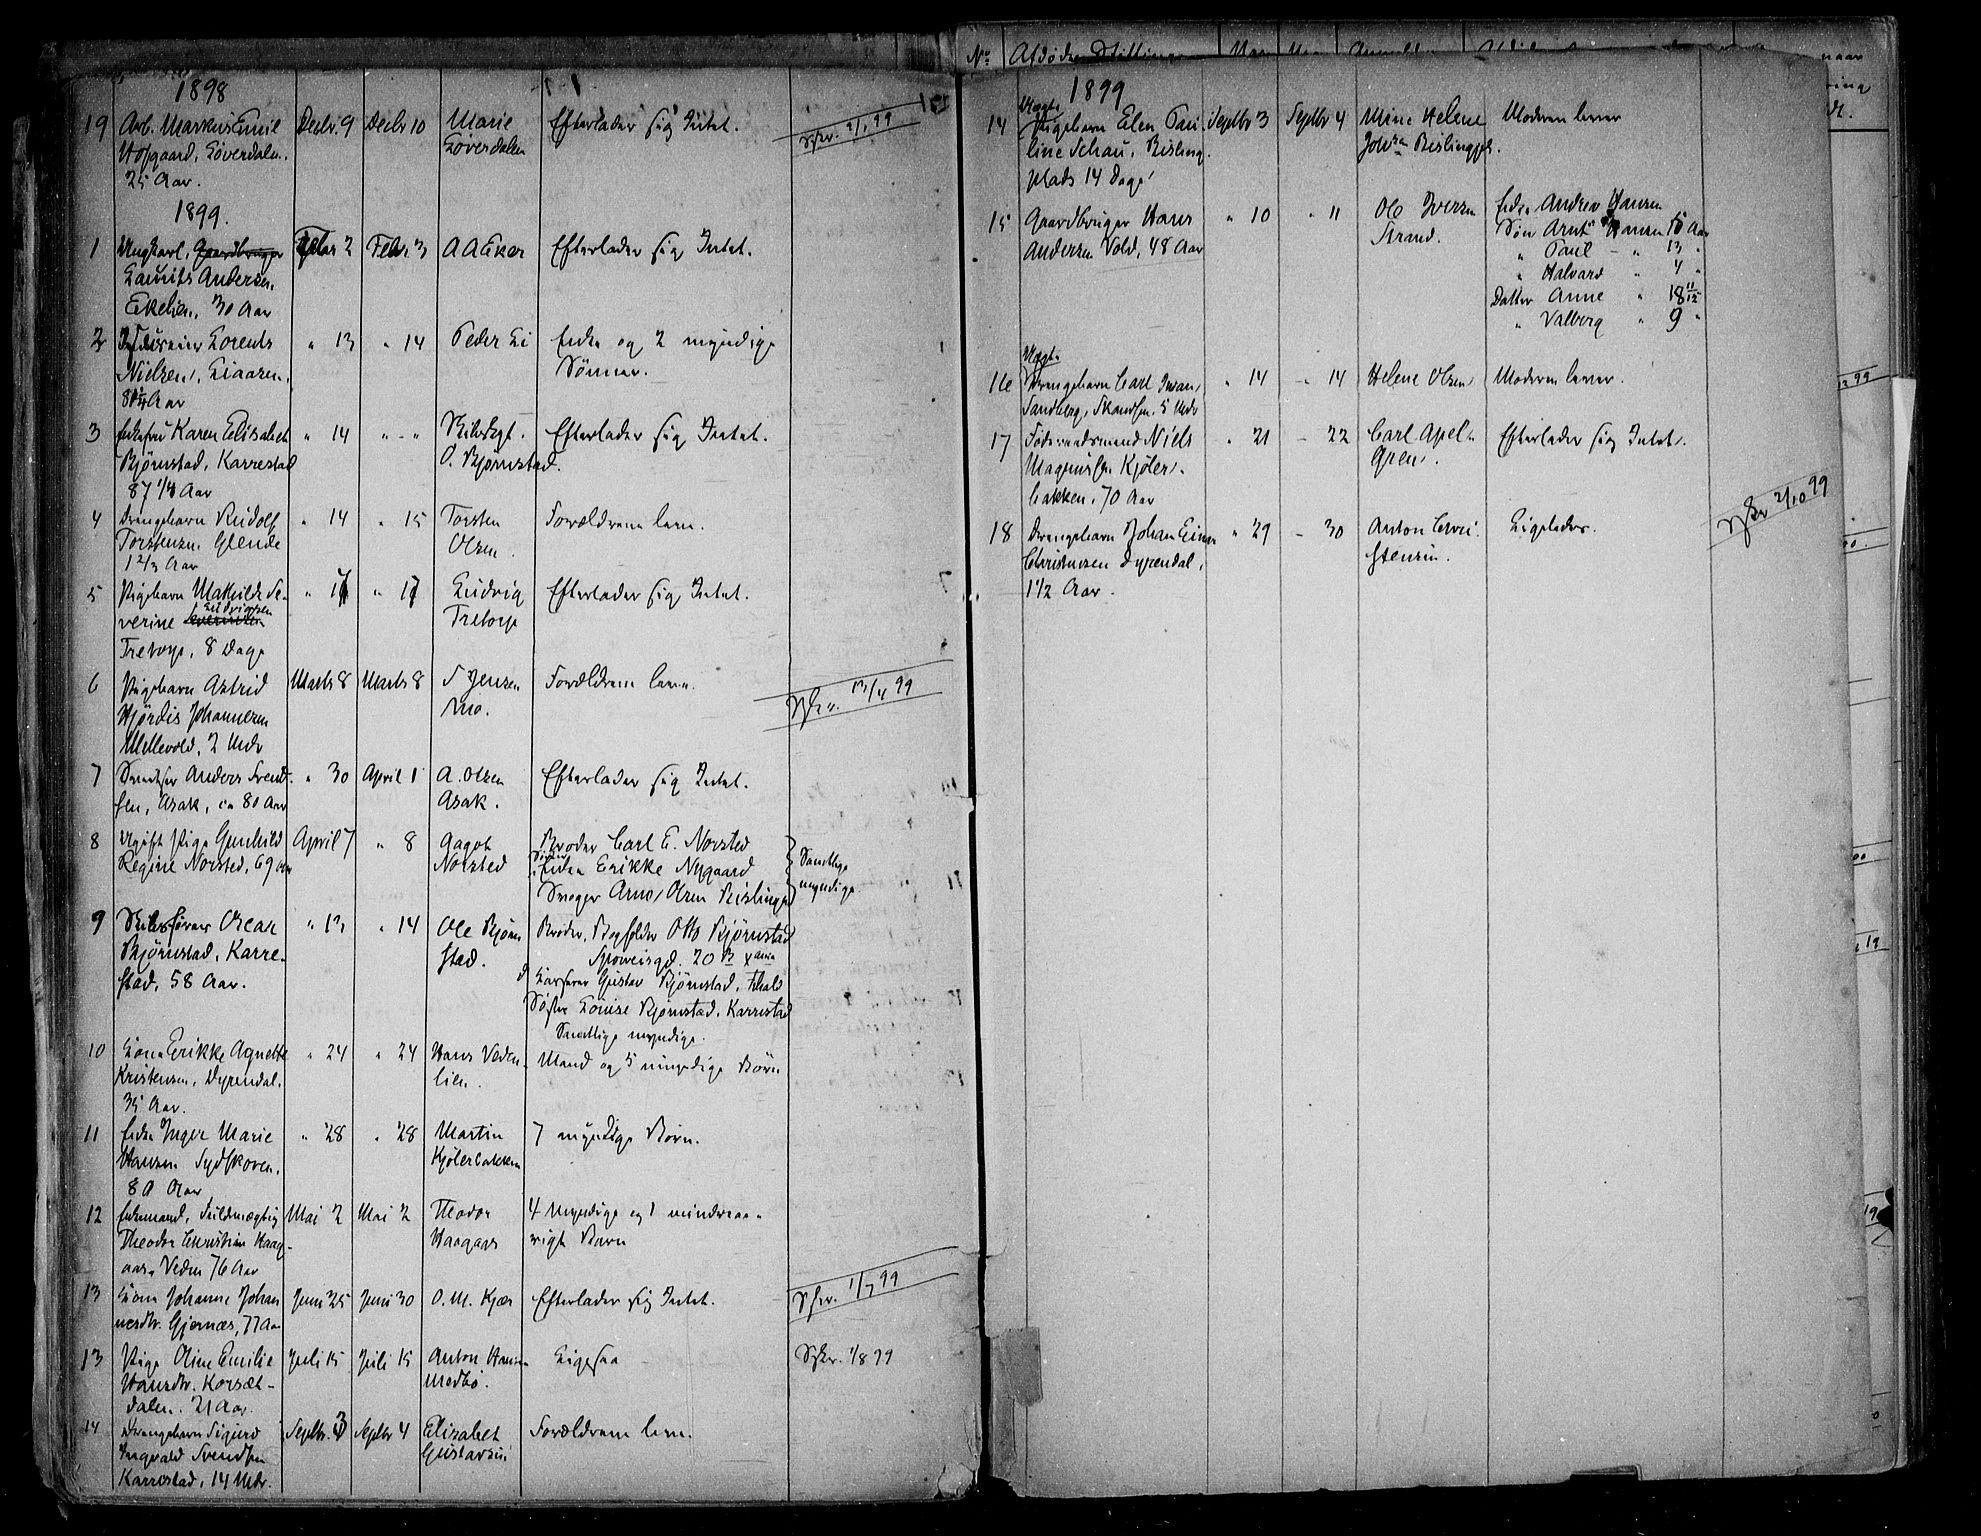 1898
19 Arb. Markus Emil Decbr. 9 Decbr 10 Marie Efterlader sig Intet. 2/1 99
Hofgaard, Løverdalen. Løverdalen
25 Aar.
1899.
1 Ungkarl, Gaardbruger Febr 2 Febr. 3 A A Eker Efterlader sig Intet.
Laurits Andersen,
Ekelien, 30 Aar
2 Lorents " 13 " 14 Peder Li Enke og 2 myndige
Nielsen, Liaasen, Sønner.
Aar
3 Enkefru Karen Elisabet " 14 " - " Skibskpt. Efterlader sig Intet.
Bjørnstad, Karrestad O. Bjørnstad.
87 1/4 Aar
4 Drengebarn Rudolf " 14 " 15 Torsten Forældrene leve.
Torstensen Glende Olsen
1 2/3 Aar
5 Pigebarn Mathilde Se- " 17 " 17 Ludvig Efterlader sig Intet.
verine Ludvigsen Tretorp
Tretorp, 8 Dage
6 Pigebarn Astrid Marts 8 Marts 8 Jensen Forældrene leve.
Hjørdis Johannesen Mo. /4 99
Millevold, 2 Mdr
7 Anders Svend- " 30 April 1 A. Olsen Efterlader sig Intet.
sen, Asak, ca 80 Aar Asak.
8 Ugift Pige Gunhild April 7 " 8 Aagot Broder Carl E. Norsted
Regine Norsted, 69 Aar Norsted Enke Erikke Nygaard Samtlige
Svoger Olsen myndige
9 Skibsfører Oscar " 13 " 14 Ole Bjørn Broder, Bogholder Otto Bjørnstad
Bjørnstad, Karre- stad. 20
stad, 58 Aar. Gustav Bjørnstad,
Søster Louise Bjørnstad, Karrestad
Samtlige myndige.
10 Kone Erikke Agnette " 24 " 24 Hans Veden- Mand og 5 umyndige Børn
Kristensen, Dyrendal, lien.
35 Aar.
11 Enke Inger Marie " 28 " 28 Martin 7 myndige Børn.
Hansen Sydskoven, Kjølerbakken
80 Aar
12 Enkemand, Fuldmægtig Mai 2 Mai 2 Theodor 4 myndige og 1 mindreaa-
Theodor Christian Haag- Haagaas rigt Barn
aas, Veden 76 Aar
13 Kone Johanne Johan Juni 25 Juni 30 O. M. Kjær Efterlader sig Intet. 1/7 99
nesdtr. Gjernæs, 77 Aar
13 Pige Oline Emilie Juli 15 Juli 15 Anton Hansen Ligesaa 1/8 99
Hansdtr. Korsæt- Modbø.
dalen. 21 Aar
14 Drengebarn Sigurd Septbr. 3 Septbr 4 Elisabet Forældrene leve.
Ingvald Svendsen Gustavsen
Karrestad, 14 Mdr.
1899
14 Uægte
Pigebarn Elen Pau Septbr 3 Septbr 4 Mine Helene Moderen lever
line Schau, Bisling Johsen Bislingpl.
plads 14 Dage
15 Gaardbruger Hans " 10 " 11 Ole Iversen Enke Andrea Hansen
Andersen Vold, 48 Aar Strand. Søn Arnt Hansen 15 Aar
" Paul - " 13 "
" Halvard " 4 "
Datter Anne " 18 11/12
" Valborg " 9 "
Uægte
16 Drengebarn Carl Iwan " 14 - 14 Helene Olsen Moderen lever.
Sandberg, 5 Mdr
17 Føderaadsmand Niels " 21 - 22 Carl Efterlader sig Intet.
Magnussen Kjøler- Gren.
bakken, 70 Aar 2/10 99
18 Drengebarn Johan Einar " 29 - 30 Anton Chri Ligeledes.
Christensen Dyrendal, stensen.
1 1/2 Aar.